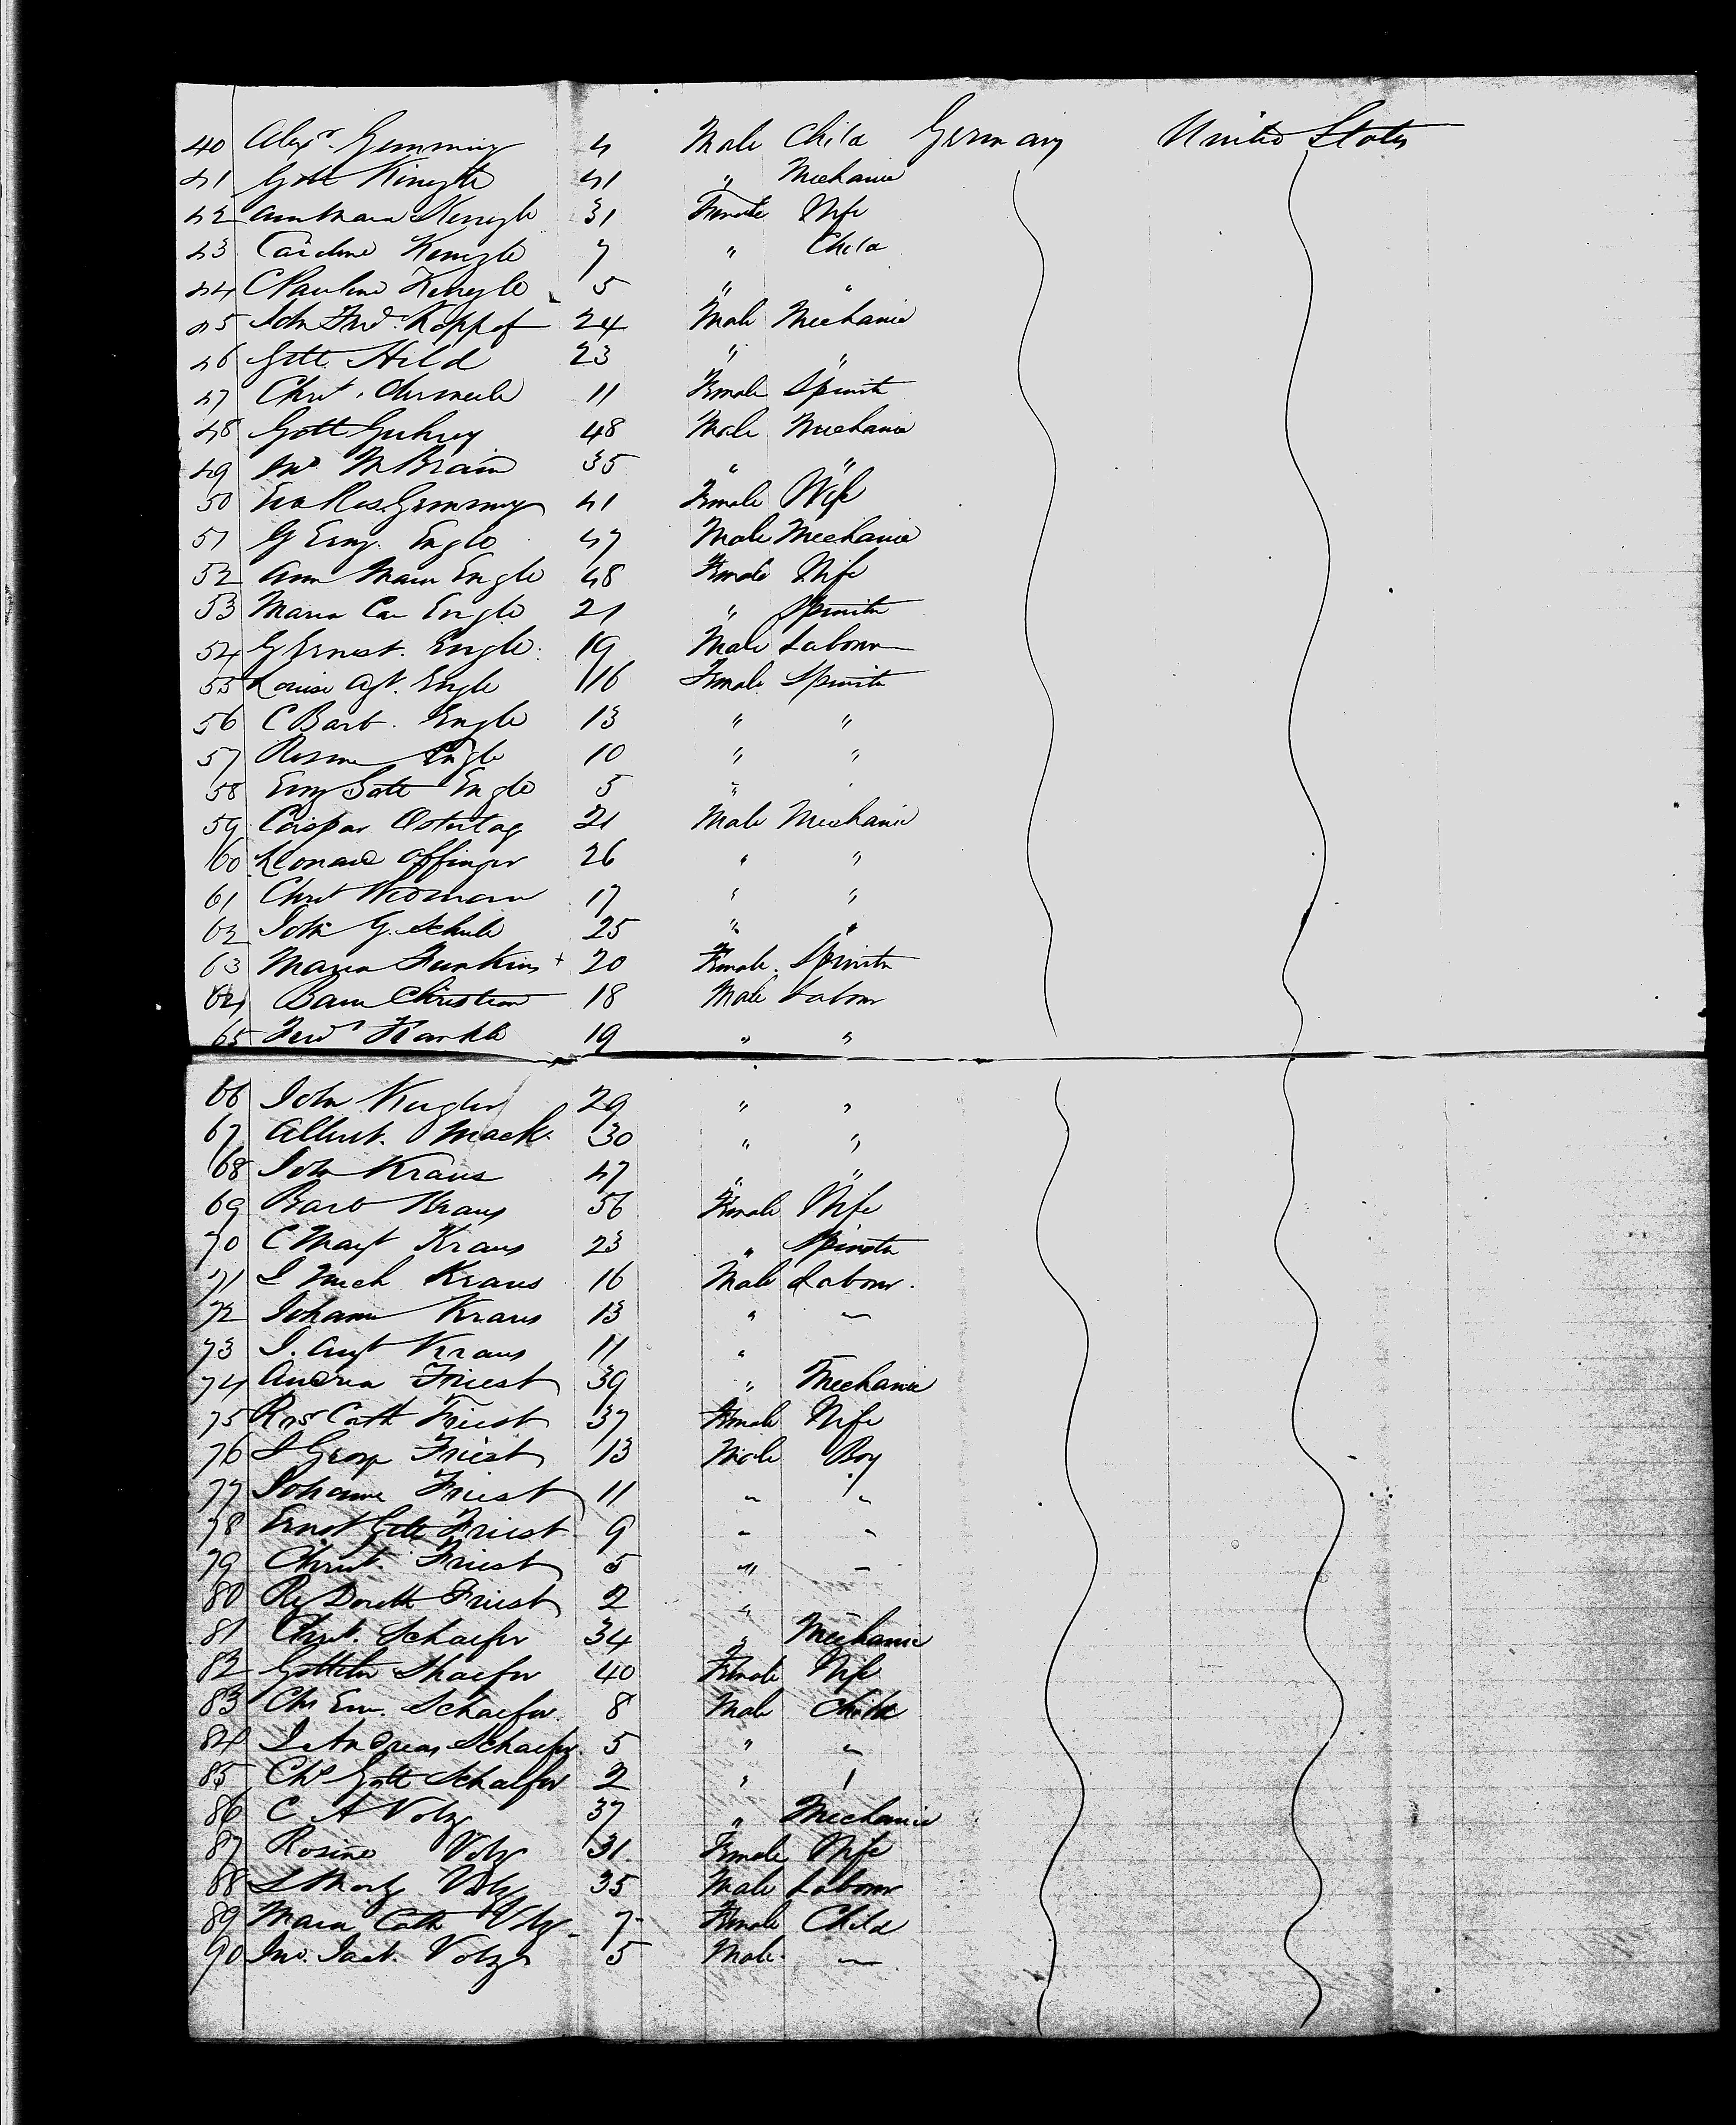 40 Alexr. Gemming 4 Male Child Germany United States
41 Gott Kingle 41 " Mechanic
42 Ann Maria Kengle 31 Female Wife
43 Caroline Kengle 7 " Child
44 C Pauline Kengle 5 " "
45 John Fred. Koppof 24 Male Mechanic
46 Gott. Hild 23 " "
47 Christ. 11 Female Spinster
48 Gott 48 Male Mechanic
49 Jno. M Braun 35 " "
50 Eva Ros. Gemming 41 Female Wife
51 G Erny. Engle 47 Male Mechanic
52 Ann Maria Engle 48 Female Wife
53 Maria Car Engle 21 " Spinster
54 G Ernest. Engle 19 Male Labourer
55 Louise Agt. Engle 16 Female Spinster
56 C Barb. Engle 13 " "
57 Rosine Engle 10 " "
58 Erny Gott Engle 5 "
59 Caspar Ostertag 21 Male Mechanic
60 Leonard Offinger 26 " "
61 Christ Widman 17 " "
62 John G. Schule 25 " "
63 Maria Funkins + 20 Female Spinster
64 Baur Christian 18 Male Labour
65 Fredr 19 " "
66 John Kugler 29 " "
67 Albert. Mack 30 " "
68 John Kraus 47 " "
69 Barb Kraus 56 Female Wife
70 C Margt Kraus 23 " Spinster
71 J Mich Kraus 16 Male Labour.
72 Johann Kraus 13 " —
73 J. Augt Kraus 11 " —
74 Andrea Friest 39 " Mechanic
75 Ros Cath Friest 37 Female Wife
76 J George Friest 13 Male Boy
77 Johanne Friest 11 " "
78 Ernst Gott Friest 9 " "
79 Christ. Friest 5 " —
80 Rg Doroth Friest 2 " —
81 Christ. Schaefer 34 " Mechanic
82 Gottlin Shaefer 40 Female Wife
83 Chs Ern. Schaefer 8 Male Child
84 J Andreas Schaefer 5 " "
85 Chs Gott Schaefer 2 "
86 C A Volz 37 " Mechanic
87 Rosine Volz 31 Female Wife
88 Volz 35 Male Labour
89 Maria Cath Volz 7 Female Child
90 Jno. Jacb. Volz 5 Male —